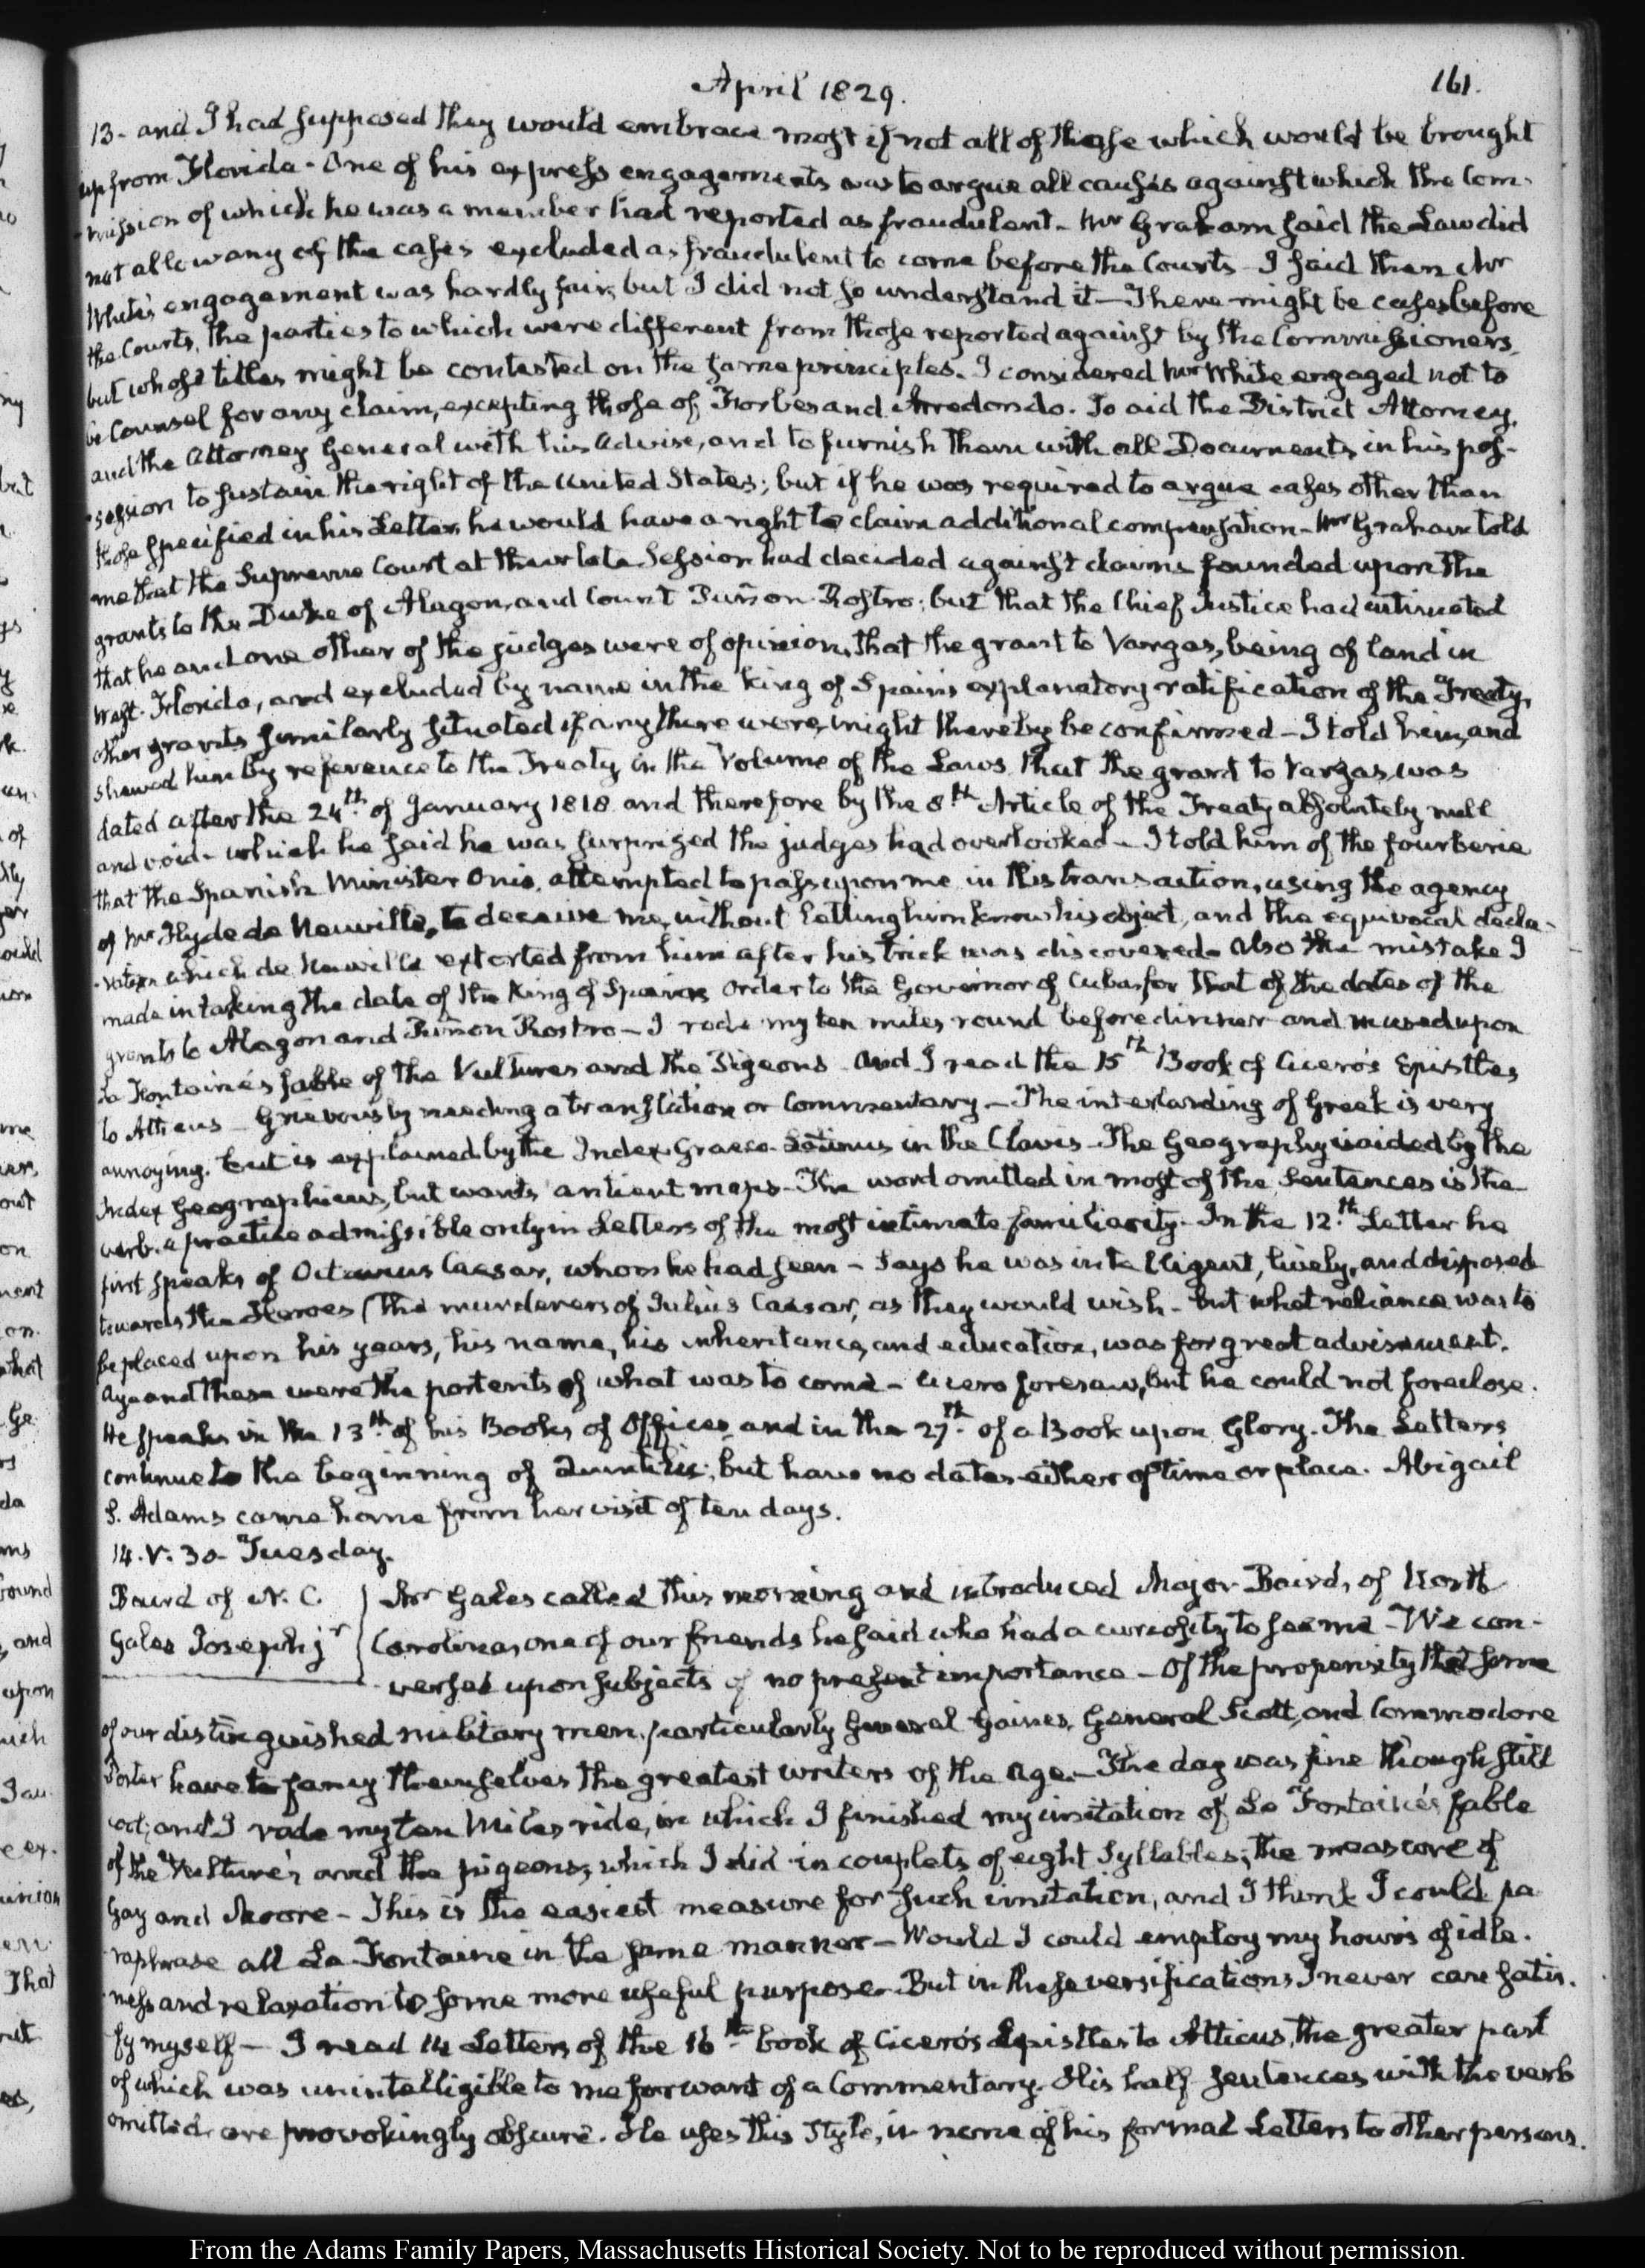 April 1829.
161.
13- and I had supposed they would embrace most if not all of those which would be brought
up from Florida - One of his express engagements was to argue all causes against which the Com-
-mission of which he was a member had reported as fraudulent - Mr Graham said the Law did
not allow any of the cases excluded as fraudulent to come before the Courts - I said then Mr
White's engagement was hardly fair, but I did not so understand it - There might be cases before
the Courts, the parties to which were different from those reported against by the Commissioners,
but whose titles might be contested on the same principles. I considered Mr White engaged not to
be Counsel for any claim, excepting those of Forbes and Arredondo. To aid the District Attorney,
and the Attorney General with his advise, and to furnish them with all Documents in his pos-
-session to sustain the right of the United States; but if he was required to argue cases other than
those specified in his Letter, he would have a right to claim additional compensation - Mr Graham told
me that the Supreme Court at their late Session had decided against claims founded upon the
grants to the Duke of Alagon, and Count Puñon-Rostro; but that the Chief Justice had intimated
that he and one other of the judges were of opinion, that the grant to Vargas, being of land in
West-Florida, and excluded by name in the King of Spain's explanatory ratification of the Treaty,
other grants similarly situated if any there were, might thereby be confirmed - I told him, and
shewed him by reference to the Treaty, in the Volume of the Laws that the grant to Vargas, was
dated after the 24th of January 1818 and therefore by the 8th Article of the Treaty absolutely null
and void - which he said he was surprized the judges had overlooked - I told him of the fourberie
that the Spanish Minister Onis, attempted to pass upon me in this transaction, using the agency
of Mr Hyde de Neuville, to deceive me, without letting him know his object, and the equivocal decla-
-ration which de Neuville extorted from him after his trick was discovered - also the mistake I
made in taking the date of the King of Spain's Order to the Governor of Cuba, for that of the dates of the
grants to Alagon and Puñon Rostro - I rode my ten miles round before dinner and mused upon
La Fontaine's fable of the Vultures and the Pigeons - And I read the 15th Book of Cicero's Epistles
to Atticus - Grievously needing a translation or Commentary - The interlarding of Greek is very
annoying, but is explained by the Index Graeco-Latinus in the Clavis - The Geography is aided by the
Index Geographicus, but wants antient maps - The word omitted in most of the Sentences is the
verb, a practice admissible only in Letters of the most intimate familiarity - In the 12th Letter he
first speaks of Octavius Caesar, whom he had seen - Says he was intelligent, lively, and disposed
towards the Heroes (the murderers of Julius Caesar, as they would wish - but what reliance was to
be placed upon his years, his name, his inheritance, and education, was for great advisement.
Aye and these were the portents of what was to come - Cicero foresaw, but he could not foreclose.
He speaks in the 13th of his Books of Offices, and in the 27th of a Book upon Glory. The Letters
continue to the beginning of Quintilis; but have no dates either of time or place. Abigail
S. Adams came home from her visit of ten days.
14. V: 30- Tuesday.
Baird of N. C.
Gales Joseph jr
Mr Gales called this morning and introduced Major Baird, of North
Carolina, one of our friends he said who had a curiosity to see me - We con-
-versed upon subjects of no present importance - Of the propensity that some
of our distinguished military men, particularly General Gaines, General Scott, and Commodore
Porter have to fancy themselves the greatest writers of the age. - The day was fine though still
cool; and I rode my ten Miles ride, in which I finished my imitation of La Fontaine's fable
of the Vultures and the pigeons; which I did in couplets of eight Syllables; the measure of
Gay and Moore - This is the easiest measure for such imitation, and I think I could pa-
-raphrase all La Fontaine in the same manner - Would I could employ my hours of idle-
-ness and relaxation to some more useful purpose - But in these versifications I never can satis-
fy myself - I read 14 Letters of the 16th book of Cicero's Epistles to Atticus, the greater part
of which was unintelligible to me for want of a Commentary. His half sentences with the verb
omitted are provokingly obscure. He uses this Style, in none of his formal Letters to other persons.
From the Adams Family Papers, Massachusetts Historical Society. Not to be reproduced without permission.